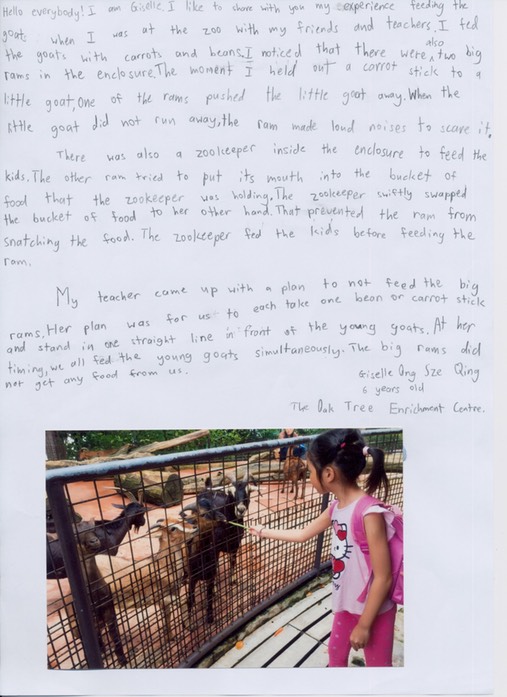 Hello everybody! I am Giselle. I like to share with you my experience feeding the
goat. When I was at the zoo with my friends and teachers. I fed
the goats with carrots and beans. I noticed that there were also two big
rams in the enclosure. The moment I held out a carrot stick to a
little goat, one of the rams pushed the little goat away. When the
little goat did not run away, the ram made loud noises to scare it.
There was also a zookeeper inside the enclosure to feed the
kids. The other ram tried to put its mouth into the bucket of
food that the zookeeper was holding. The zookeeper swiftly swapped
the bucket of food to her other hand. That prevented the ram from
snatching the food. The zookeeper fed the kids before feeding the
ram.
My teacher came up with a plan to not feed the big
rams. Her plan was for us to each take one bean or carrot stick
and stand in one straight line in front of the young goats. At her
timing, we all fed the young goats simultaneously. The big rams did
not get any food from us.
Giselle Ong Sze Qing
6 years old
The Oak Tree Enrichment Centre.